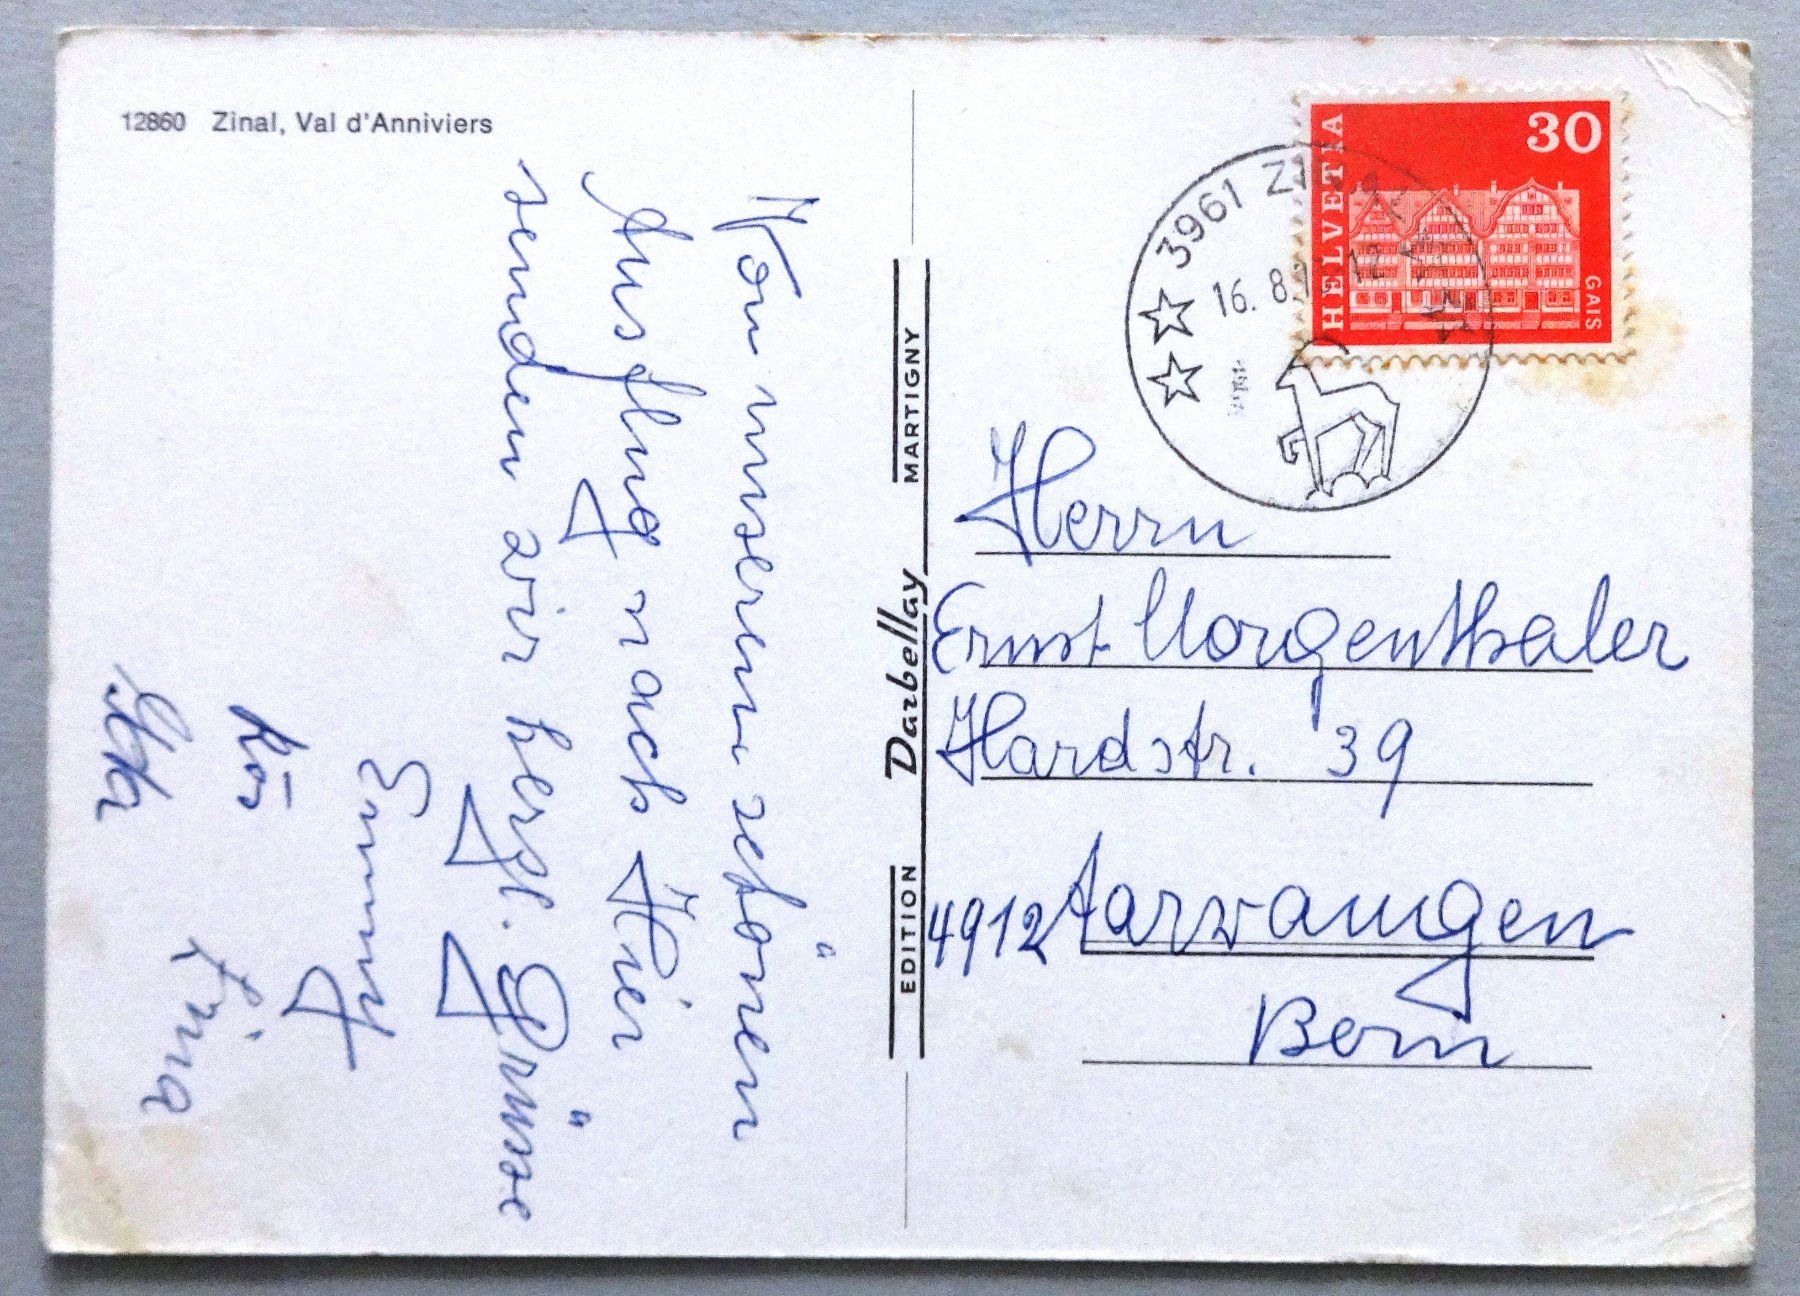 12860 Zinal, Val d'Anniviers
Von unserem schönen
Ausflug nach Hier
senden wir herzl. Grüsse
Emmy
Rös
Lina
EDITION Darbellay MARTIGNY
HELVETIA
30
GAIS
3961
16. 8. 12
Herrn
Ernst Morgenthaler
Hardstr. 39
4912 Aarwangen
Bern